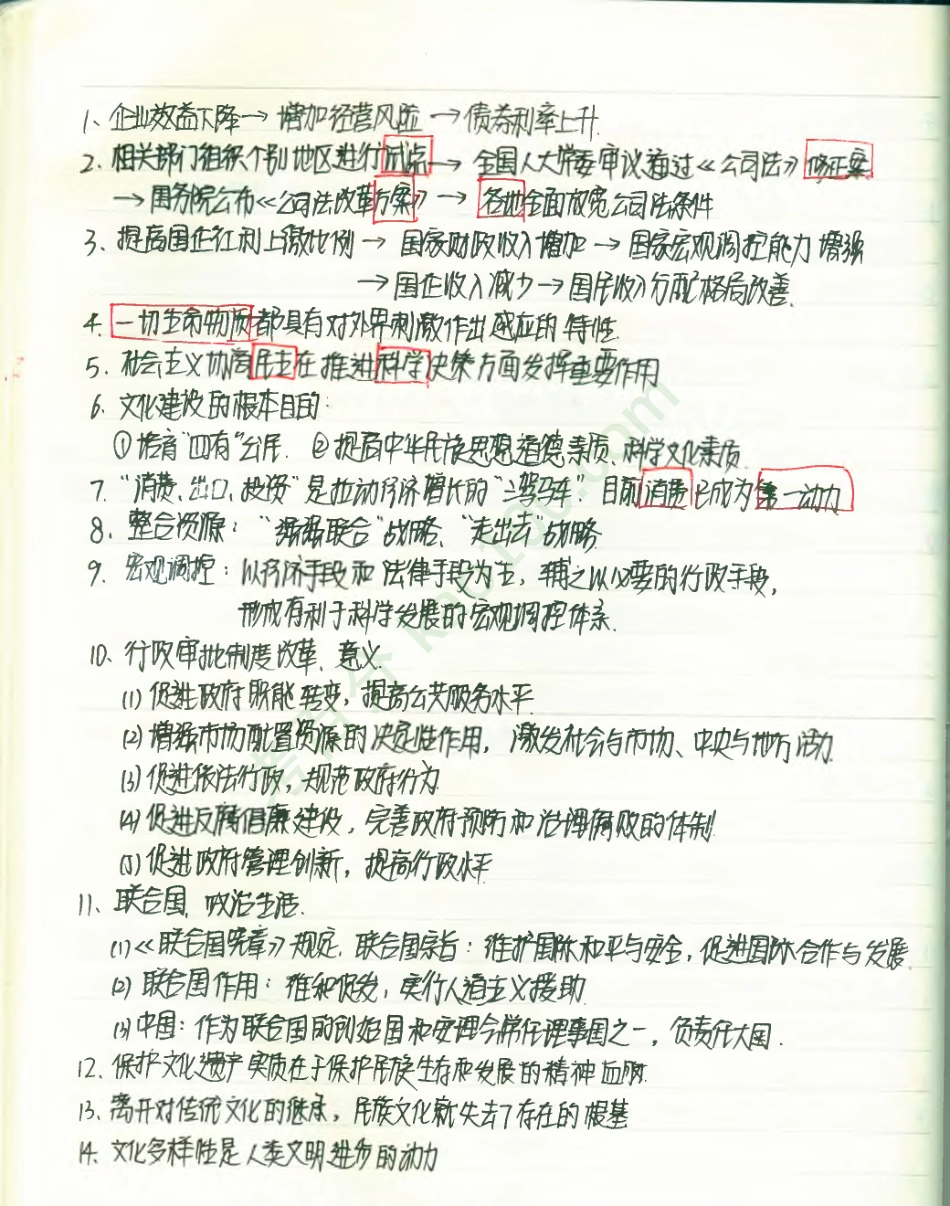 1、企业效益下降→增加经营风险→债券利率上升.
2、相关部门组织个别地区进行试点→全国人大常委审议通过《公司法》修正案
→国务院公布《公司法改革方案》→各地全面放宽公司法条件
3、提高国企红利上缴比例→国家财政收入增加→国家宏观调控能力增强
→国企收入减少→国民收入分配格局改善.
4、一切生命物质都具有对外界刺激作出感应的特性.
5、社会主义协商民主在推进科学决策方面发挥重要作用
6、文化建设的根本目的:
①培育"四有"公民. ②提高中华民族思想道德素质 科学文化素质.
7、"消费、出口、投资"是拉动经济增长的"三驾马车" 目前消费已成为第一动力
8、整合资源:"强强联合"战略、"走出去"战略
9、宏观调控:以经济手段和法律手段为主,辅之以必要的行政手段,
形成有利于科学发展的宏观调控体系.
10、行政审批制度改革、意义.
(1)促进政府职能转变,提高公共服务水平.
(2)增强市场配置资源的决定性作用,激发社会与市场、中央与地方活力.
(3)促进依法行政,规范政府行为.
(4)促进反腐倡廉建设,完善政府预防和治理腐败的体制.
(5)促进政府管理创新,提高行政水平.
11、联合国、政治生活.
(1)《联合国宪章》规定,联合国宗旨:维护国际和平与安全,促进国际合作与发展.
(2)联合国作用:维和促发,实行人道主义援助.
(3)中国:作为联合国的创始国和安理会常任理事国之一,负责任大国.
12、保护文化遗产实质在于保护民族生存和发展的精神血脉.
13、离开对传统文化的继承,民族文化就失去了存在的根基
14、文化多样性是人类文明进步的动力